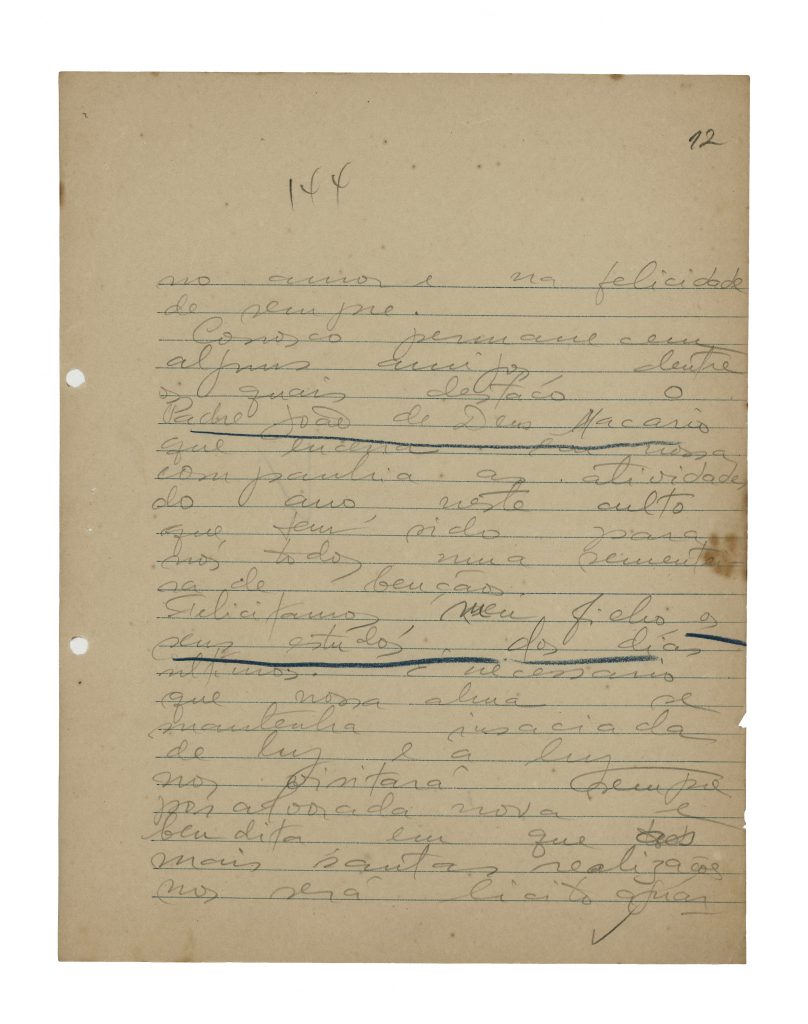 12
144
no amor e na felicidade
de sempre.
Conosco permanecem
alguns amigos dentre
os quais destaco o
Padre João de Deus Macario
que encerra em nossa
companhia as atividades
do ano neste culto
que tem sido para
nós todos uma sementei
ra de benção
Felicitamos meu filho os
seus estudos dos dias
ultimos. É necessario
que nossa alma se
mantenha insaciada
de luz e a luz
nos visitará sempre
por alvorada nova e
bendita em que
mais santas realizações
nos será licito